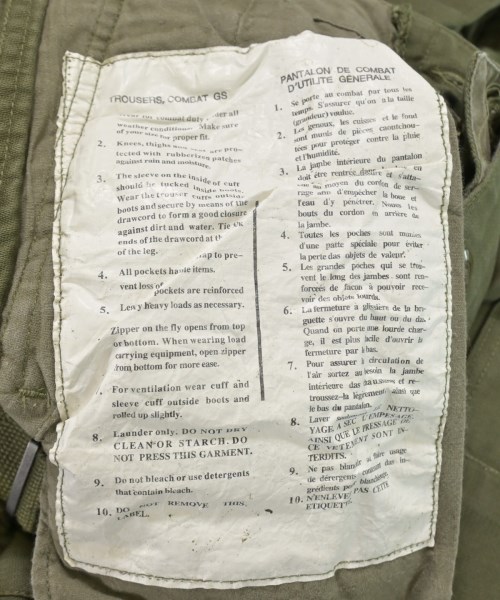 TROUSERS, COMBAT GS
for combat duty all
weather conditions. Make sure
of your size for proper fit.
2. Knees, thighs and are pro-
tected with rubberized patches
against rain and moisture.
3. The sleeve on the inside of cuff
should be tucked inside boots.
Wear the trouser cuffs outside
boots and secure by means of the
drawcord to form a good closure
against dirt and water. Tie
ends of the drawcord at th
of the leg.
4. All pockets ha ap to pre-
vent loss of items.
5. Leg pockets are reinforced
y heavy loads as necessary.
Zipper on the fly opens from top
or bottom. When wearing load
carrying equipment, open zipper
from bottom for more ease.
For ventilation wear cuff and
sleeve cuff outside boots and
rolled up slightly.
8. Launder only. DO NOT DRY
CLEAN OR STARCH. DO
NOT PRESS THIS GARMENT.
9. Do not bleach or use detergents
that contain bleach.
10. DO NOT REMOVE THIS
LABEL.
PANTALON DE COMBAT
D'UTILITÉ GÉNÉRALE
1. Se porte au combat par tous les
temps. S'assurer qu'on a la taille
(grandeur) voulue.
2. Les genoux, les cuisses et le fond
sont munis de pièces caoutchou-
tées pour protéger contre la pluie
et l'humidité.
3. La jambe intérieure du pantalon
doit être rentrée dans et s'atta-
au moyen du cordon de ser-
rage afin d'empêcher la boue et
l'eau d'y pénétrer. Nouer les
bouts du cordon en arrière de
la jambe.
4. Toutes les poches sont munies
d'une patte spéciale pour éviter
la perte des objets de valeur.
5. Les grandes poches qui se trou-
vent le long des jambes sont ren-
forcées de façon à pouvoir rece-
voir des objets lourds.
6. La fermeture à glissière de la bra-
guette s'ouvre du haut ou du bas.
Quand on porte une lourde char-
ge, il est plus facile d'ouvrir la
fermeture par le bas.
7. Pour assurer la circulation de
l'air sortez au besoin la jambe
intérieure des et re-
troussez-la légèrement ainsi que
le bas du pantalon.
8. Laver seulement. NETTO-
YAGE À SEC L'EMPESAGE
AINSI QUE LE PRESSAGE DE
CE VETEMENT SONT IN-
TERDITS.
9. Ne pas blanchir ni faire usage
de détergents contenant des in-
grédients pour blanchissage.
10. N'ENLEVEZ PAS CETTE
ETIQUETTE.